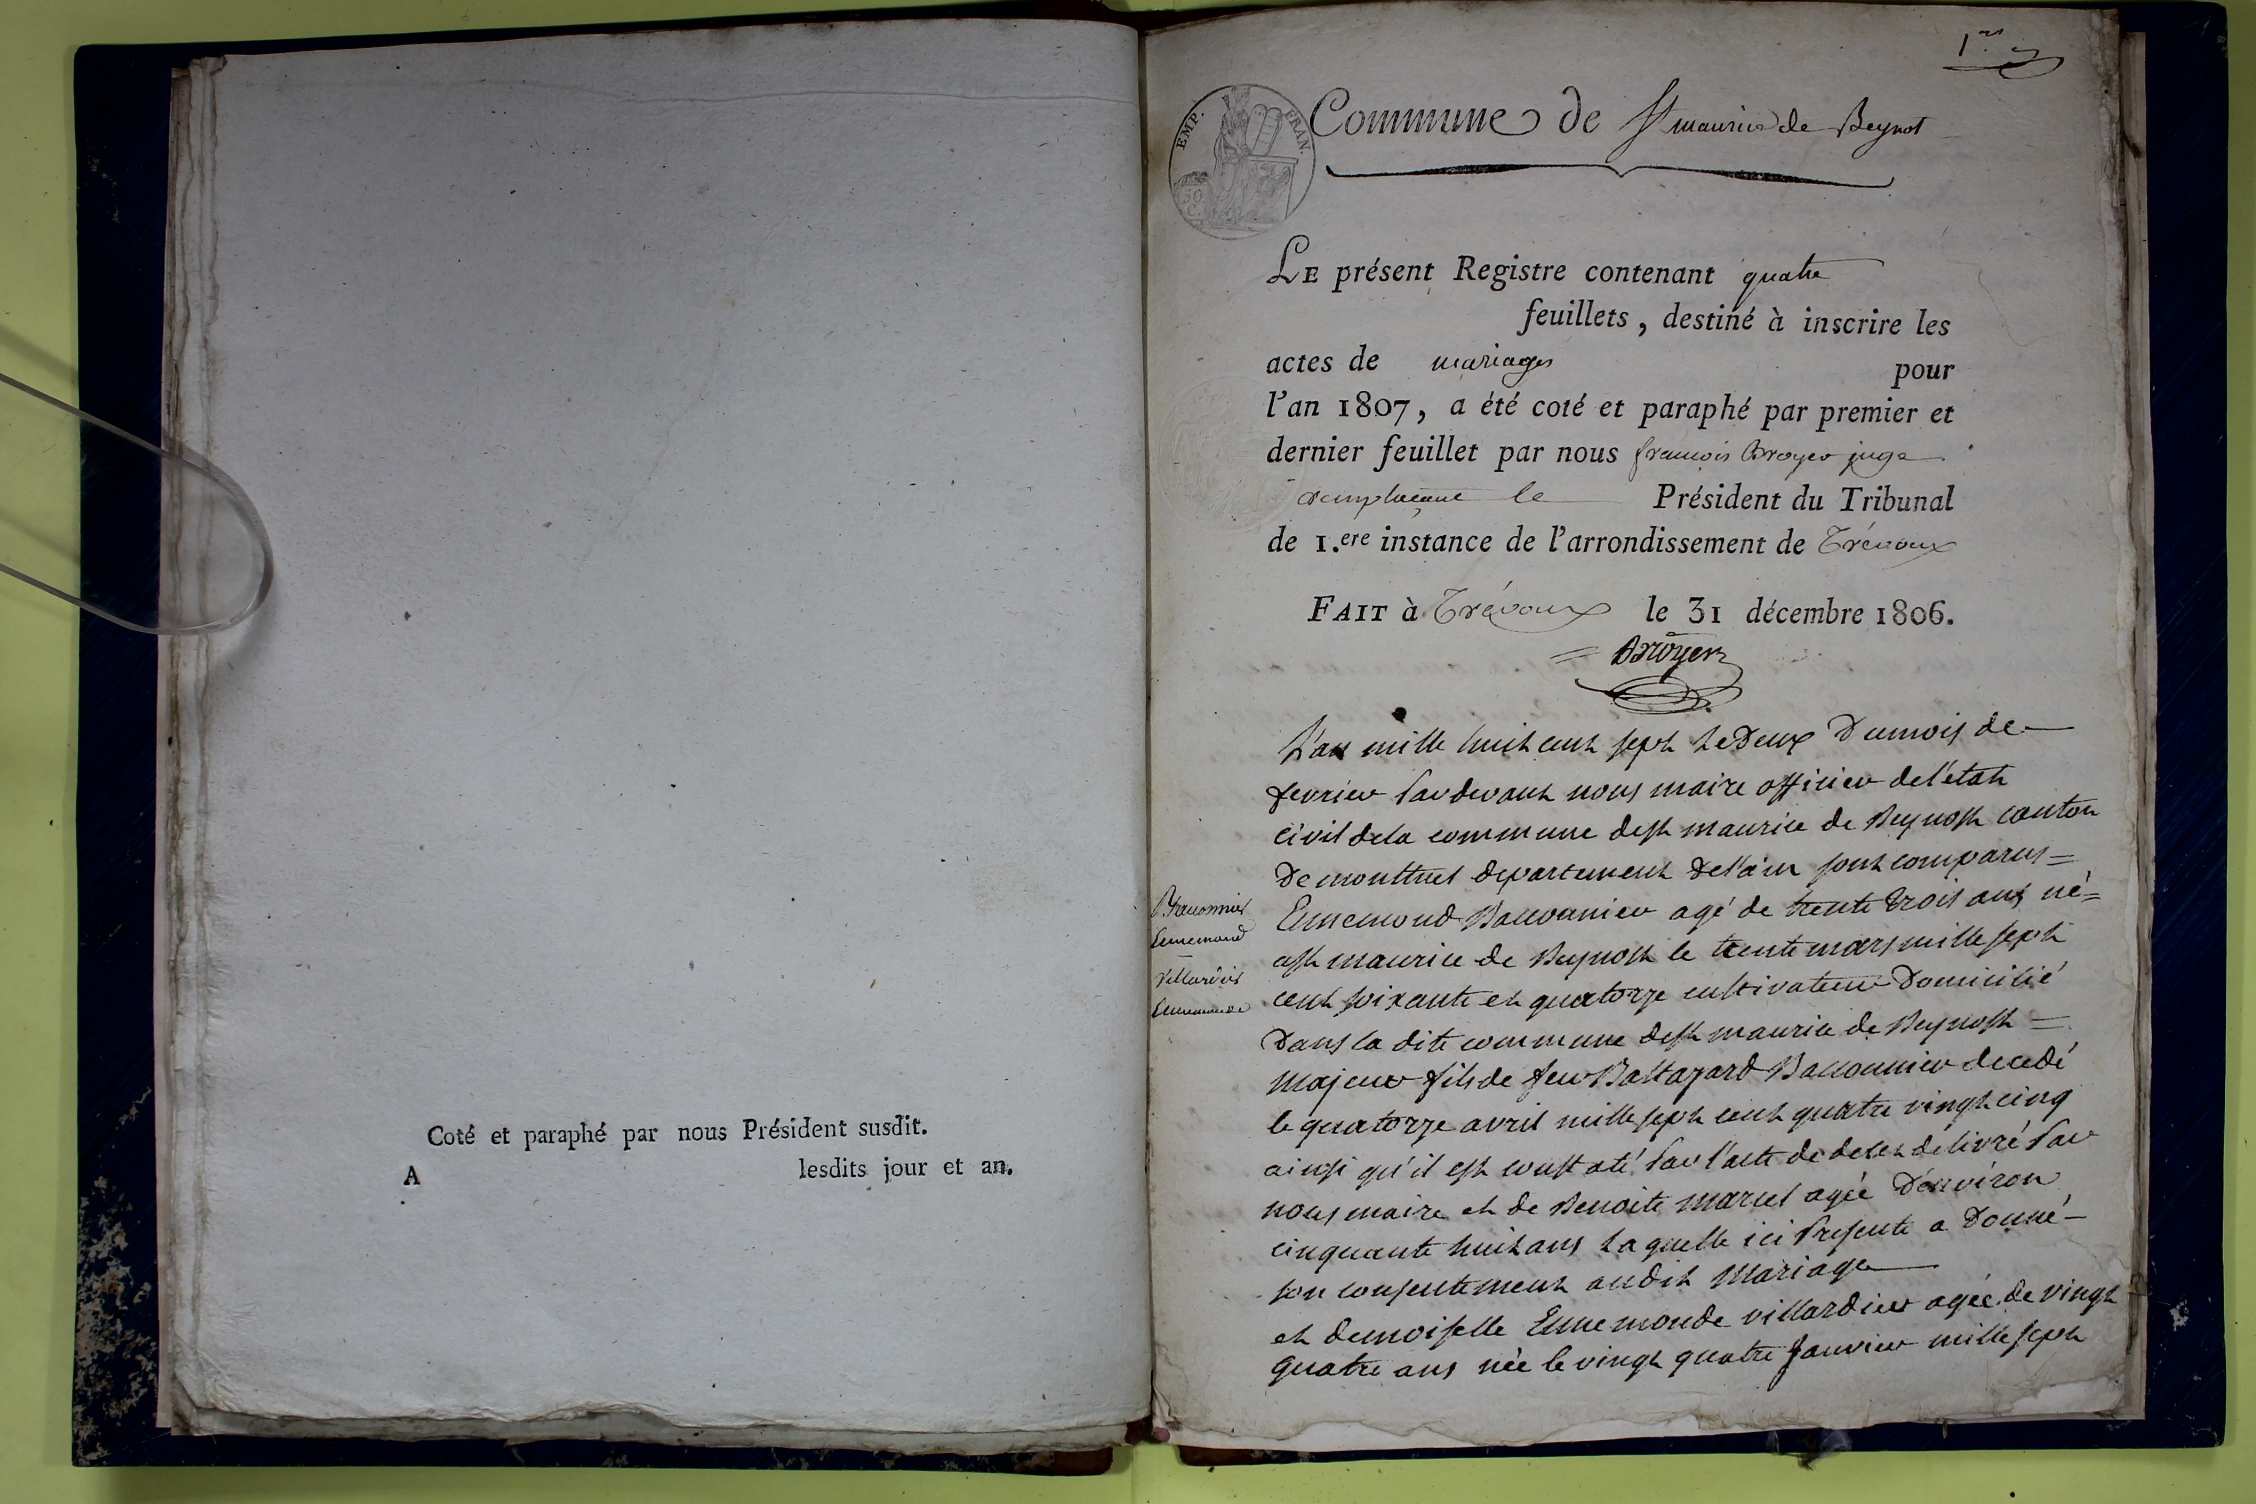 Coté et paraphé par nous Président susdit.
A lesdits jour et an.
1er
EMP. FRAN.
50
C.
Commune de St maurice de Beynost
LE présent Registre contenant quatre
feuillets, destiné à inscrire les
actes de mariages pour
l'an 1807, a été coté et paraphé par premier et
dernier feuillet par nous françois Broyer juge
remplaçant le Président du Tribunal
de 1.ere instance de l'arrondissement de Trévoux
FAIT à Trévoux le 31 décembre 1806.
Broyer
L'an mille huit cent sept le Deux Du mois de
fevrier Pardevant nous maire officier de l'état
civil de la commune de st maurice de Beynost canton
De montluel departement de l'ain sont comparus =
Ennemond Bacconnier agé de trente trois ans né =
a st maurice de Beynost le trente mars mille sept
cent soixante et quatorze cultivateur Domicilié
Dans la dite commune de st maurice de Beynost =
Majeur fils de feu Baltazard Bacconnier decedé
le quatorze avril mille sept cent quatre vingt cinq
ainsi qu'il est constaté Par l'acte de deces délivré Par
nous maire et de Benoite marcel agée D'environ
cinquante huit ans Laquelle ici Presente a Donné
son consentement audit Mariage
et demoiselle Ennemonde villardier agée de vingt
quatre ans née le vingt quatre Janvier mille sept
Bacconnier
Ennemond
Villardier
Ennemonde